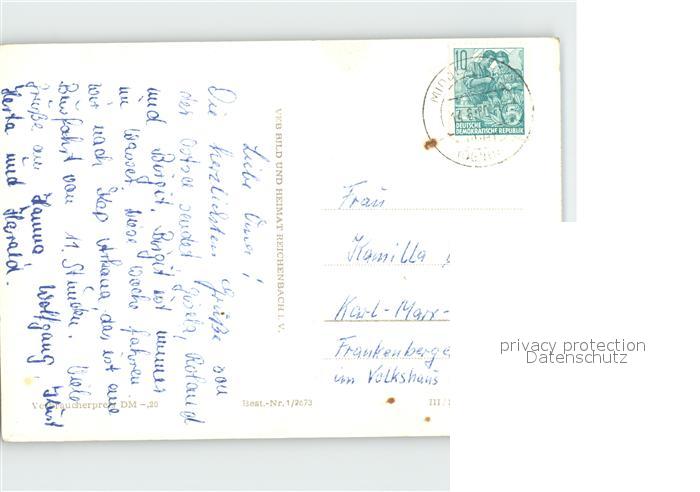 Liebe Oma!
Die herzlichsten Grüße von
der Ostsee sendet Gisela, Roland
und Birgit. Birgit ist immer
im Wasser. Diese Woche fahren
wir nach Kap Arkona das ist eine
Busfahrt von 11. Stunden. Viele
Grüße an Hanna, Wolfgang,
Herta und Harald.
VEB BILD UND HEIMAT REICHENBACH I. V.
10
DEUTSCHE
DEMOKRATISCHE REPUBLIK
Frau
Kamilla
Karl-Marx-
Frankenberge
im Volkshaus
Verbraucherpreis DM -,20
Best.-Nr. 1/2673
III/
privacy protection
Datenschutz